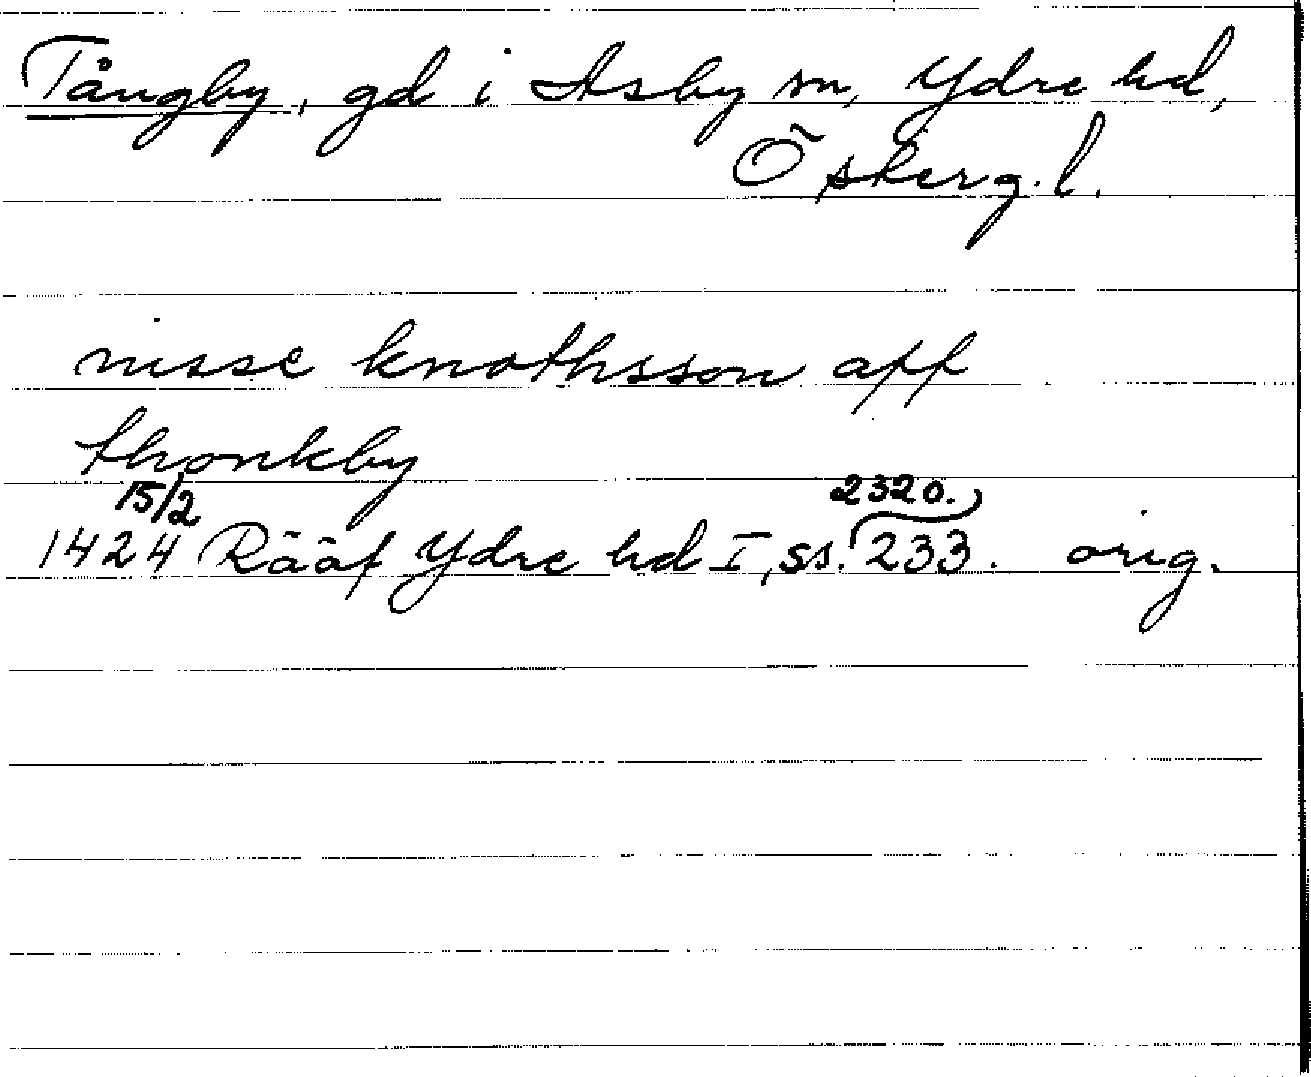 Tångby, gd i Asby sn, Ydre hd,
Östergl.
nisse knothsson aff
thonkby
15/2 2320.
1424 Rääf Ydre hd I, ss. 233. orig.